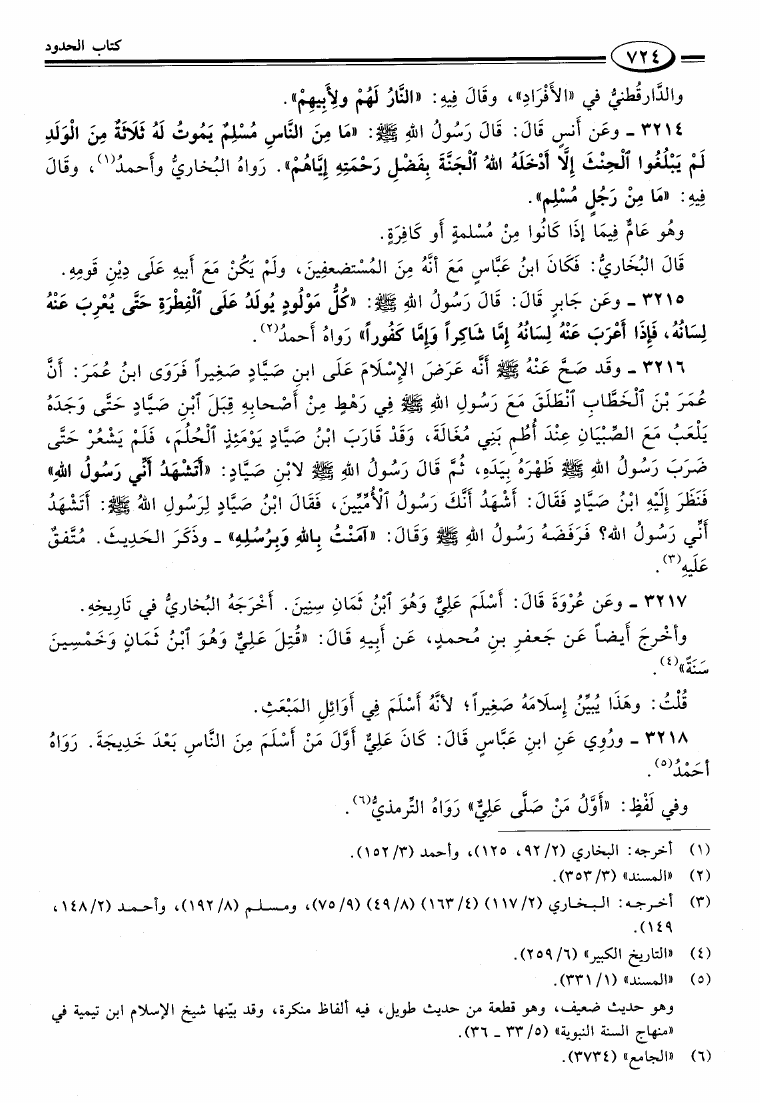 كتاب الحدود
٧٢٤
والدَّارقُطنيُّ في «الأَفْرَادِ»، وقَالَ فِيهِ: «النَّارُ لَهُمْ ولِأَبِيهِمْ».
٣٢١٤ ـ وعَن أَنسٍ قَالَ: قَالَ رَسُولُ اللهِ ﷺ: «مَا مِنَ النَّاسِ مُسْلِمٌ يَمُوتُ لَهُ ثَلَاثَةٌ مِنَ الْوَلَدِ
لَمْ يَبْلُغُوا ٱلْحِنْثَ إِلَّا أَدْخَلَهُ اللهُ ٱلْجَنَّةَ بِفَضْلِ رَحْمَتِهِ إِيَّاهُمْ». رَواهُ البُخاريُّ وأَحمدُ(١)، وقَالَ
فِيهِ: «مَا مِنْ رَجُلٍ مُسْلِمٍ».
وهُو عَامٌّ فِيمَا إِذَا كَانُوا مِنْ مُسْلمةٍ أَو كَافِرَةٍ.
قَالَ البُخاريُّ: فَكَانَ ابنُ عَبَّاسٍ مَعَ أُمِّهِ مِنَ المُسْتضعفِينَ، ولَمْ يَكُنْ مَعَ أَبيهِ عَلَى دِيْنِ قَومِهِ.
٣٢١٥ ـ وعَن جَابرٍ قَالَ: قَالَ رَسُولُ اللهِ ﷺ: «كُلُّ مَوْلُودٍ يُولَدُ عَلَى ٱلْفِطْرَةِ حَتَّى يُعْرِبَ عَنْهُ
لِسَانُهُ، فَإِذَا أَعْرَبَ عَنْهُ لِسَانُهُ إِمَّا شَاكِراً وَإِمَّا كَفُوراً» رَواهُ أَحمدُ(٢).
٣٢١٦ ـ وقَد صَحَّ عَنْهُ ﷺ أَنَّه عَرَضَ الإِسْلَامَ عَلَى ابنِ صَيَّادٍ صَغِيراً فَرَوَى ابنُ عُمَرَ: أَنَّ
عُمَرَ بْنَ الْخَطَّابِ ٱنْطَلَقَ مَعَ رَسُولِ اللهِ ﷺ فِي رَهْطٍ مِنْ أَصْحَابِهِ قِبَلَ ٱبْنِ صَيَّادٍ حَتَّى وَجَدَهُ
يَلْعَبُ مَعَ الصِّبْيَانِ عِنْدَ أُطُمِ بَنِي مُغَالَةَ، وَقَدْ قَارَبَ ابْنُ صَيَّادٍ يَوْمَئِذٍ ٱلْحُلُمَ، فَلَمْ يَشْعُرْ حَتَّى
ضَرَبَ رَسُولُ اللهِ ﷺ ظَهْرَهُ بِيَدِهِ، ثُمَّ قَالَ رَسُولُ اللهِ ﷺ لابْنِ صَيَّادٍ: «أَتَشْهَدُ أَنِّي رَسُولُ اللهِ»
فَنَظَرَ إِلَيْهِ ابْنُ صَيَّادٍ فَقَالَ: أَشْهَدُ أَنَّكَ رَسُولُ ٱلْأُمِّيِّينَ، فَقَالَ ابْنُ صَيَّادٍ لِرَسُولِ اللهُ ﷺ: أَتَشْهَدُ
أَنِّي رَسُولُ الله؟ فَرَفَضَهُ رَسُولُ اللهِ ﷺ وَقَالَ: «آمَنْتُ بِاللهِ وَبِرُسُلِهِ» ـ وذَكَرَ الحَدِيثَ. مُتَّفقٌ
عَلَيهِ(٣).
٣٢١٧ ـ وعَن عُرْوَةَ قَالَ: أَسْلَمَ عَلِيٌّ وَهُوَ ٱبْنُ ثَمَانِ سِنِينَ. أَخْرَجَهُ البُخاريُّ في تَارِيخِهِ.
وأخْرجَ أَيضاً عَن جَعفرِ بنِ مُحمدٍ، عَن أَبِيهِ قَالَ: «قُتِلَ عَلِيٌّ وَهُوَ ٱبْنُ ثَمَانٍ وَخَمْسِينَ
سَنَةً»(٤).
قُلْتُ: وهَذَا يُبيِّنُ إِسلَامَهُ صَغِيراً؛ لأَنَّهُ أَسْلَمَ فِي أَوَائِلِ المَبْعَثِ.
٣٢١٨ ـ ورُوِي عَنِ ابنِ عَبَّاسٍ قَالَ: كَانَ عَلِيٌّ أَوَّلَ مَنْ أَسْلَمَ مِنَ النَّاسِ بَعْدَ خَدِيجَةَ. رَوَاهُ
أحْمَدُ(٥).
وفي لَفْظٍ: «أَوَّلُ مَنْ صَلَّى عَلِيٌّ» رَوَاهُ التِّرمذيُّ(٦).
(١) أخرجه: البخاري (٩٢/٢، ١٢٥)، وأحمد (١٥٢/٣).
(٢) «المسند» (٣٥٣/٣).
(٣) أخرجه: البخاري (١١٧/٢) (١٦٣/٤) (٤٩/٨) (٧٥/٩)، ومسلم (١٩٢/٨)، وأحمد (١٤٨/٢،
١٤٩).
(٤) «التاريخ الكبير» (٢٥٩/٦).
(٥) «المسند» (٣٣١/١).
وهو حديث ضعيف، وهو قطعة من حديث طويل، فيه ألفاظ منكرة، وقد بيّنها شيخ الإسلام ابن تيمية في
«منهاج السنة النبوية» (٣٣/٥ ـ ٣٦).
(٦) «الجامع» (٣٧٣٤).